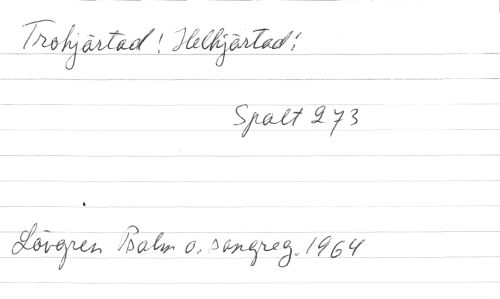 Trohjärtad! Helhjärtad!
Spalt 273
Lövgren Psalm o. sångreg. 1964